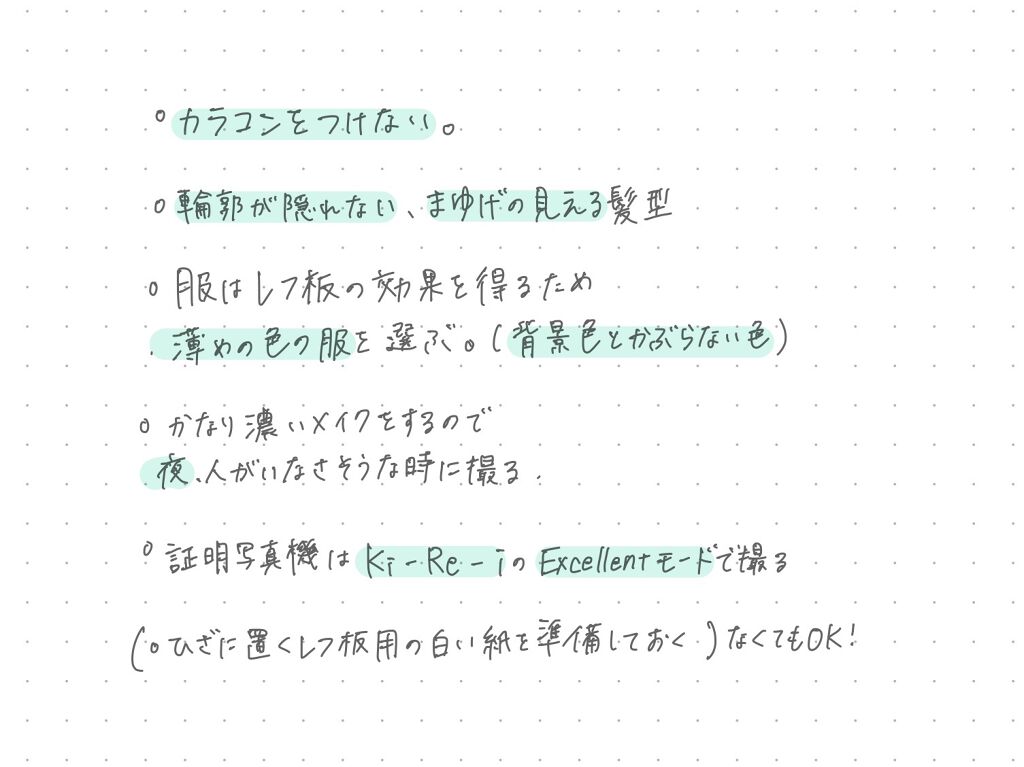 ○ カラコンをつけない。
○ 輪郭が隠れない、まゆげの見える髪型
○ 服はレフ板の効果を得るため
薄めの色の服を選ぶ。(背景色とかぶらない色)
○ かなり濃いメイクをするので
夜、人がいなさそうな時に撮る.
○ 証明写真機は Ki-Re-i の Excellentモードで撮る
(○ ひざに置くレフ板用の白い紙を準備しておく)なくてもOK!